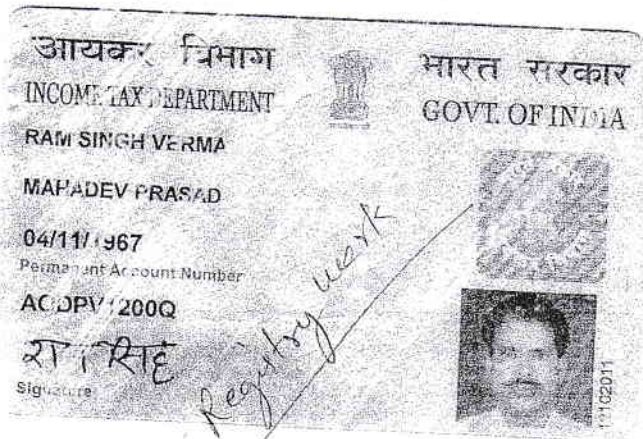 आयकर विभाग
भारत सरकार
INCOME TAX DEPARTMENT
GOVT. OF INDIA
RAM SINGH VERMA
MAHADEV PRASAD
04/11/1967
Permanent Account Number
सिंह
Signature
Registry work